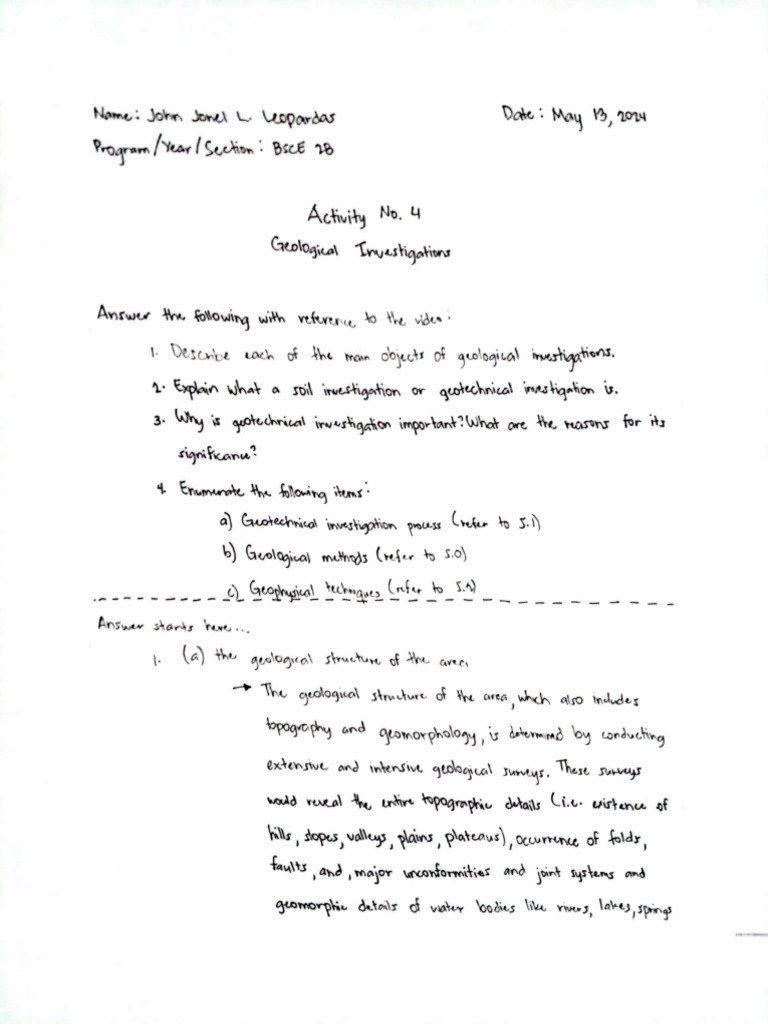 Name: John Jonel L. Leopardas
Date: May 13, 2024
Program/Year/Section: BSCE 2B
Activity No. 4
Geological Investigations
Answer the following with reference to the video:
1. Describe each of the main objects of geological investigations.
2. Explain what a soil investigation or geotechnical investigation is.
3. Why is geotechnical investigation important? What are the reasons for its
significance?
4. Enumerate the following items:
a) Geotechnical investigation process (refer to 5.1)
b) Geological methods (refer to 5.0)
c) Geophysical techniques (refer to 5.4)
Answer starts here...
1. (a) the geological structure of the area.
→ The geological structure of the area, which also includes
topography and geomorphology, is determined by conducting
extensive and intensive geological surveys. These surveys
would reveal the entire topographic details (i.e. existence of
hills, slopes, valleys, plains, plateaus), occurrence of folds,
faults, and, major unconformities and joint systems and
geomorphic details of water bodies like rivers, lakes, springs